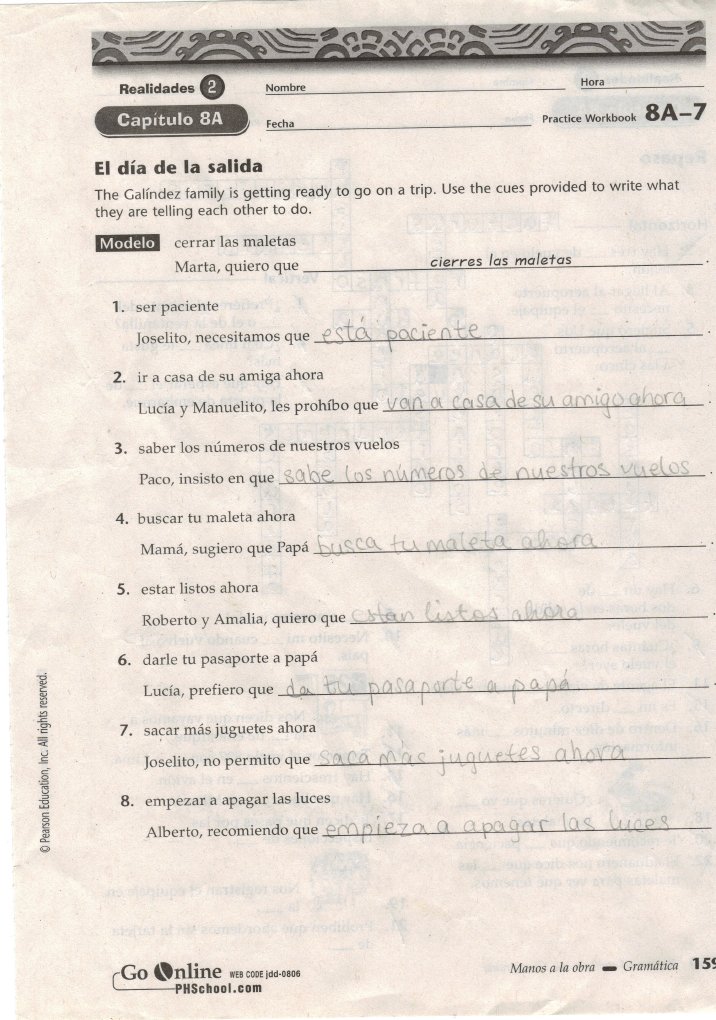 Realidades 2
Nombre
Hora
Capítulo 8A
Fecha
Practice Workbook 8A–7
El día de la salida
The Galíndez family is getting ready to go on a trip. Use the cues provided to write what
they are telling each other to do.
Modelo cerrar las maletas
Marta, quiero que cierres las maletas.
1. ser paciente
Joselito, necesitamos que está paciente.
2. ir a casa de su amiga ahora
Lucía y Manuelito, les prohíbo que van a casa de su amigo ahora.
3. saber los números de nuestros vuelos
Paco, insisto en que sabe los números de nuestros vuelos.
4. buscar tu maleta ahora
Mamá, sugiero que Papá busca tu maleta ahora.
5. estar listos ahora
Roberto y Amalia, quiero que están listos ahora.
6. darle tu pasaporte a papá
Lucía, prefiero que da tu pasaporte a papá.
7. sacar más juguetes ahora
Joselito, no permito que saca más juguetes ahora.
8. empezar a apagar las luces
Alberto, recomiendo que empieza a apagar las luces.
© Pearson Education, Inc. All rights reserved.
Go Online WEB CODE jdd-0806
PHSchool.com
Manos a la obra — Gramática 159